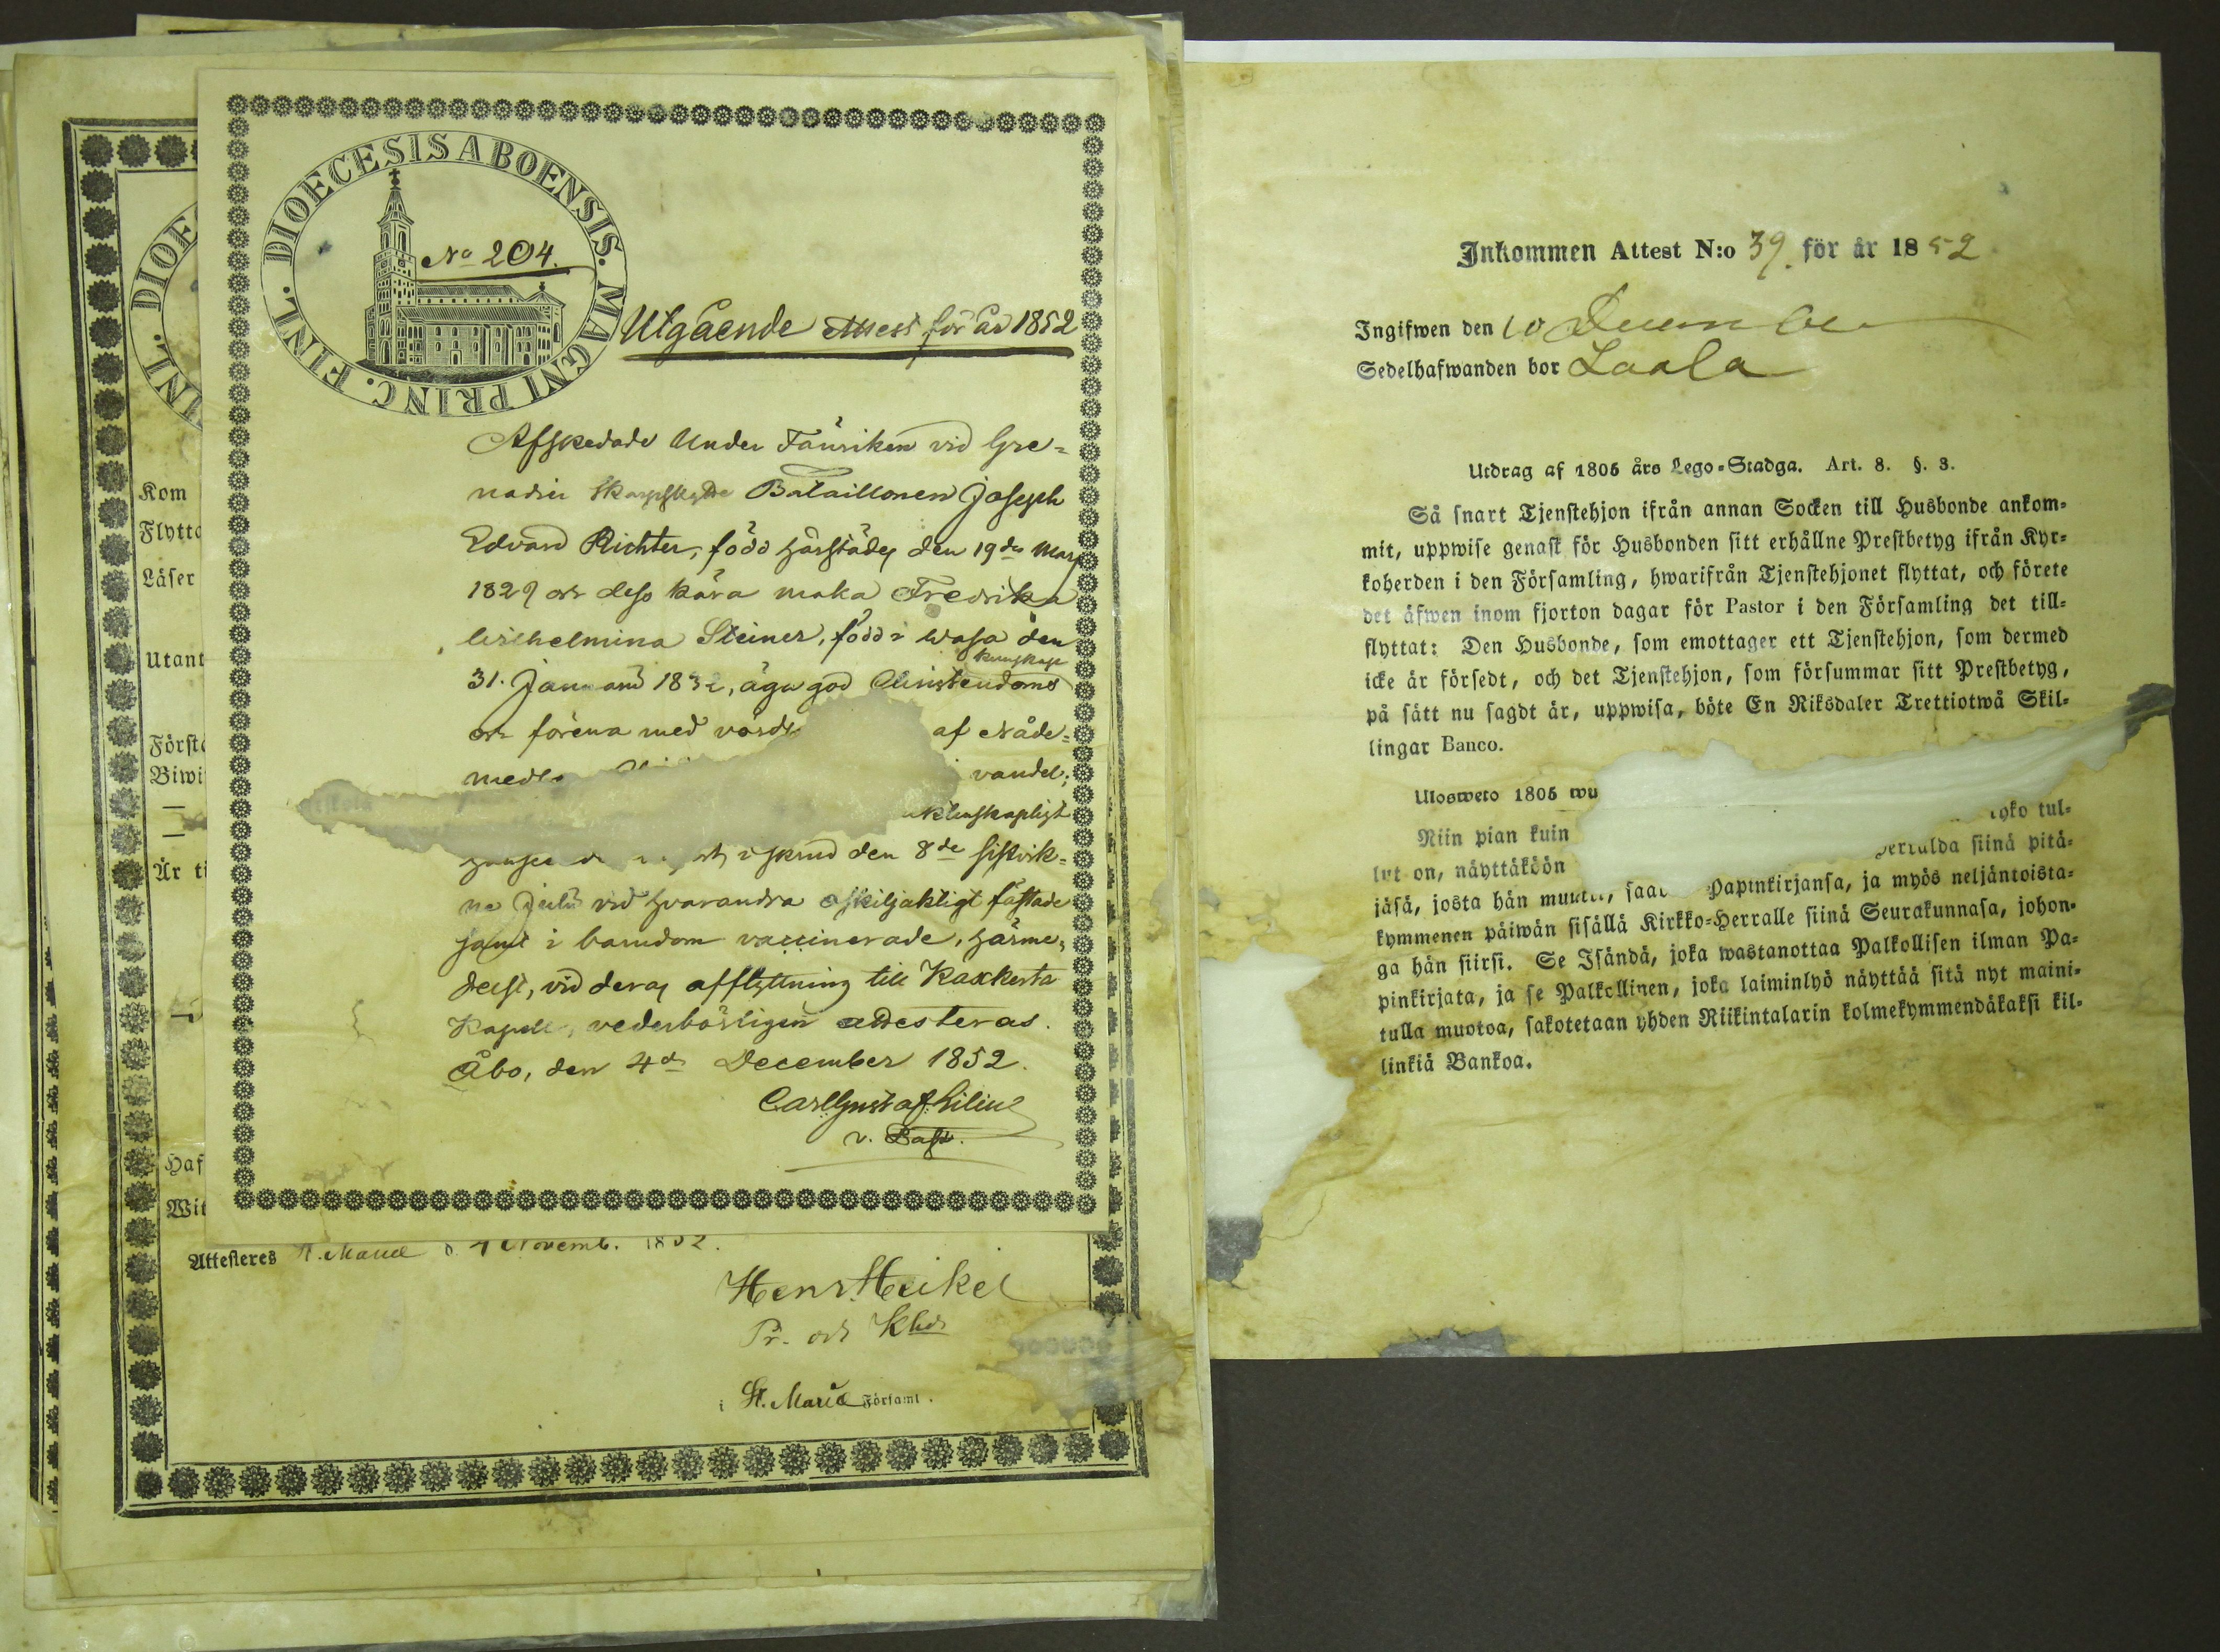 DIOECESIS ABOENSIS. MAGNI PRINC. FINL.
No 204.
Utgående Attest för år 1852
Afskedade Under Fänriken vid Gre=
nadier Skarpskytte Bataillonen Joseph
Edvard Richter, född härstädes den 19de Mars
182 och dess kära maka Fredrika
Wilhelmina Steiner, född i Wasa den
31. Januarii 18, äga god Christendoms kunskap
och förena med af Nåde=
vandel;
den 8de sistvik=
ne Julii vid hvarandra oskiljaktligt fästade
samt i barndom vaccinerade, härme=
delst, vid deras afflyttning till Kaxkerta
Kapell, vederbörligen attesteras.
Åbo, den 4de December 1852.
Carl Gustaf Lilius
v. Past.
DIOE
FINL.
Kom
Flytta
Läser
Utant
Första
Biwi
Är ti
Haf
Wit
Attesteres St. Marie d. 4 Novemb. 1852.
Henr Heikel
Pr. och Khde
i St. Marie Församl.
Inkommen Attest N:o 39. för år 1852
Ingifwen den 10 December
Sedelhafwanden bor Laala
Utdrag af 1805 års Lego=Stadga. Art. 8. §. 3.
Så snart Tjenstehjon ifrån annan Socken till Husbonde ankom=
mit, uppwise genast för Husbonden sitt erhållne Prestbetyg ifrån Kyr=
koherden i den Församling, hwarifrån Tjenstehjonet flyttat, och förete
det äfwen inom fjorton dagar för Pastor i den Församling det till=
flyttat: Den Husbonde, som emottager ett Tjenstehjon, som dermed
icke är försedt, och det Tjenstehjon, som försummar sitt Prestbetyg,
på sätt nu sagdt är, uppwisa, böte En Riksdaler Trettiotwå Skil=
lingar Banco.
Ulosweto 1805 wu
Niin pian kuin tyko tul=
lut on, näyttäköön Herralda siinä pitä=
jäsä, josta hän muutti, saadun Papinkirjansa, ja myös neljäntoista=
kymmenen päiwän sisällä Kirkko=Herralle siinä Seurakunnasa, johon=
ga hän siirsi. Se Isändä, joka wastanottaa Palkollisen ilman Pa=
pinkirjata, ja se Palkollinen, joka laiminlyö näyttää sitä nyt maini=
tulla muotoa, sakotetaan yhden Riikintalarin kolmekymmendäkaksi kil=
linkiä Bankoa.